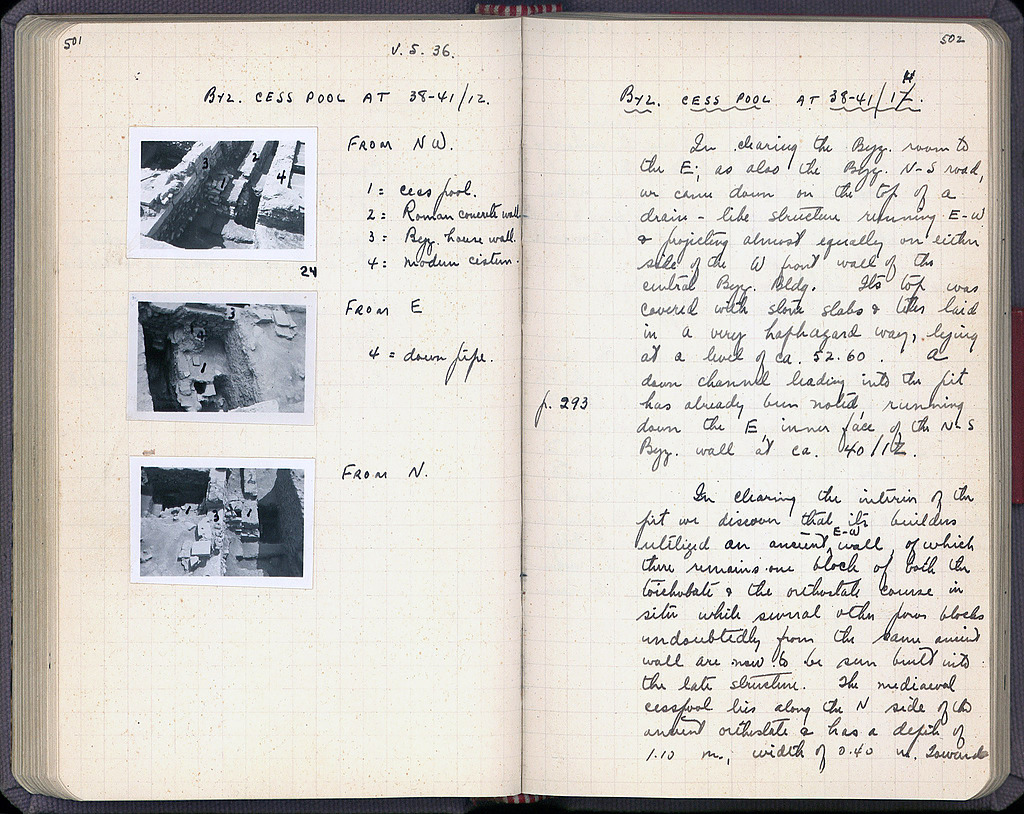 501
V. S. 36.
BYZ. CESS POOL AT 38-41/12.
FROM NW.
1 = cess pool.
2 = Roman concrete wall
3 = Byz. house wall.
4 = modern cistern.
24
FROM E
4 = down pipe.
FROM N.
502
BYZ. CESS POOL AT 38-41/12.
H
In clearing the Byz. room to
the E; as also the Byz. N-S road,
we came down on the top of a
drain-like structure running E-W
& projecting almost equally on either
side of the W front wall of the
central Byz. Bldg. Its top was
covered with stone slabs & tiles laid
in a very haphazard way, lying
at a level of ca. 52.60. A
down channel leading into the pit
p. 293 has already been noted, running
down the E, inner face of the N-S
Byz. wall at ca. 40/12.
In clearing the interior of the
pit we discover that its builders
utilized an ancient E-W wall, of which
there remains one block of both the
toichobate & the orthostate course in
situ while several other poros blocks
undoubtedly from the same ancient
wall are now to be seen built into
the late structure. The mediaeval
cesspool lies along the N side of the
ancient orthostate & has a depth of
1.10 m., width of 0.40 m. Towards